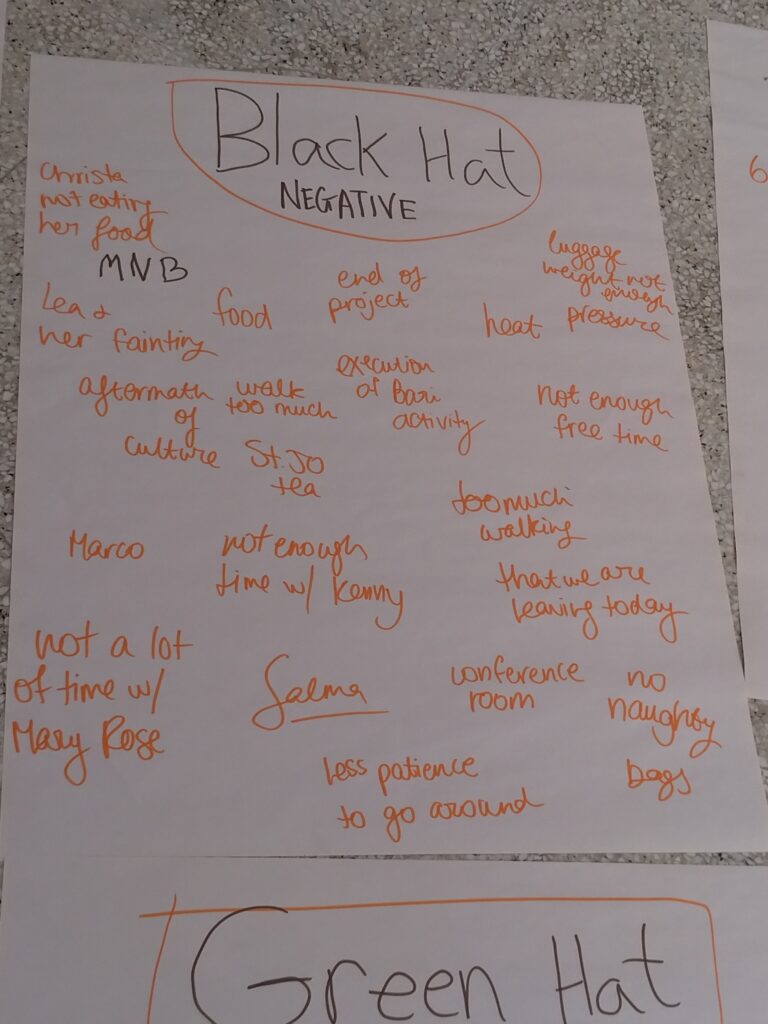 Black Hat
NEGATIVE
Christa
not eating
her food
MNB
Lea &
her fainting
food
end of
project
luggage
weight not
enough
heat
pressure
aftermath
of
culture
walk
too much
execution
of Bari
activity
not enough
free time
St. Jo
tea
too much
walking
Marco
not enough
time w/ Kenny
that we are
leaving today
not a lot
of time w/
Mary Rose
Salma
conference
room
no
naughty
bags
less patience
to go around
Green Hat
6